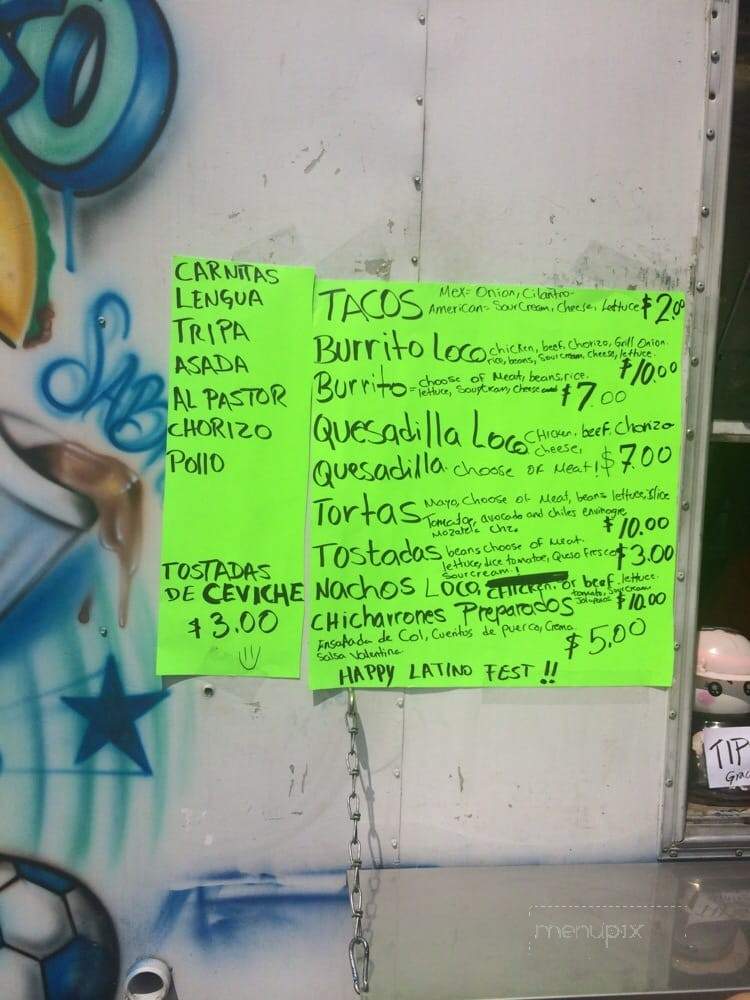 SO
SAB
CARNITAS
LENGUA
TRIPA
ASADA
AL PASTOR
CHORIZO
POllO
TOSTADAS
DE CEVICHE
$3.00
TACOS Mex= Onion, Cilantro-
American= Sour Cream, Cheese, Lettuce $2.00
Burrito Loco chicken, beef, Chorizo, Grill Onion.
rice, beans, Sour cream, cheese, lettuce. $10.00
Burrito = choose of Meat, beans, rice.
lettuce, Sour cream, Cheese $7.00
Quesadilla Loco Chicken, beef, Chorizo
cheese,
Quesadilla. choose of Meat! $7.00
Tortas Mayo, Choose of Meat, beans lettuce, slice
Tomatoe, avocado and chiles envinagre
$10.00
Tostadas beans choose of Meat.
lettuce, dice tomatoe, Queso fresco $3.00
Sour cream.!
Nachos Loco, Chicken, or beef. lettuce.
tomato, Sour cream
Jalapeños $10.00
Chicharrones Preparados
Ensalada de Col, Cueritos de puerco, Crema
Salsa Valentina $5.00
HAPPY LATINO FEST !!
TIP
Grac
menupix